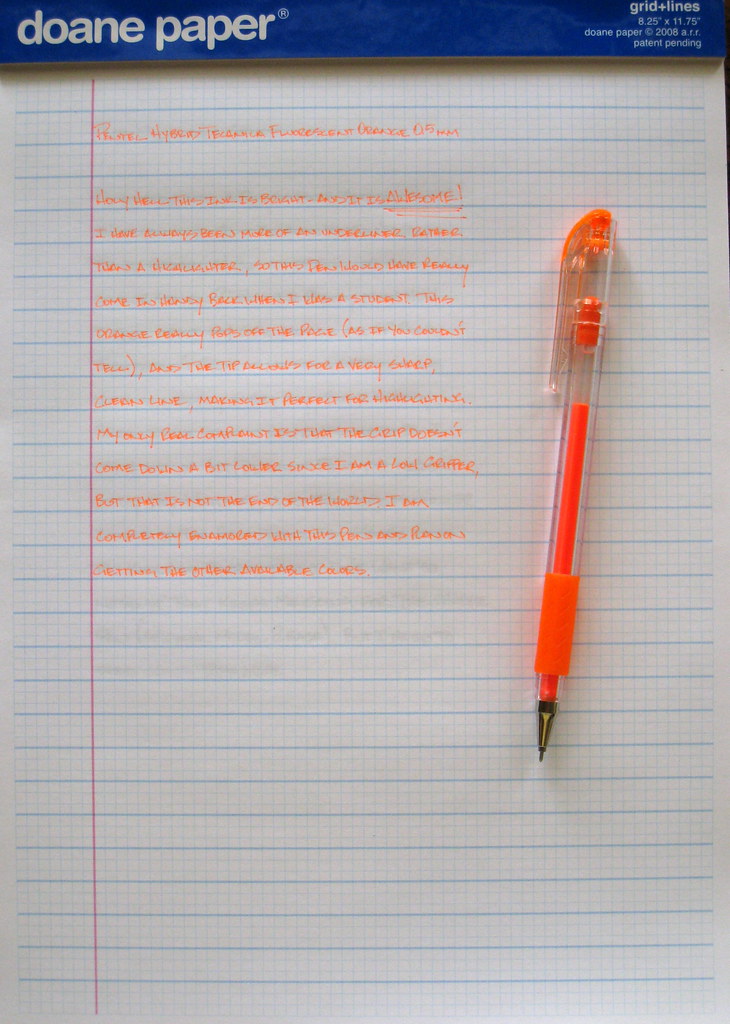 doane paper®
grid+lines
8.25" x 11.75"
doane paper © 2008 a.r.r.
patent pending
PENTEL HYBRID TECHNICA FLUORESCENT ORANGE 0.5 MM
HOLY HELL THIS INK IS BRIGHT - AND IT IS AWESOME!
I HAVE ALWAYS BEEN MORE OF AN UNDERLINER, RATHER
THAN A HIGHLIGHTER, SO THIS PEN WOULD HAVE REALLY
COME IN HANDY BACK WHEN I WAS A STUDENT. THIS
ORANGE REALLY POPS OFF THE PAGE (AS IF YOU COULDN'T
TELL), AND THE TIP ALLOWS FOR A VERY SHARP,
CLEAN LINE, MAKING IT PERFECT FOR HIGHLIGHTING.
MY ONLY REAL COMPLAINT IS THAT THE GRIP DOESN'T
COME DOWN A BIT LOWER SINCE I AM A LOW GRIPPER,
BUT THAT IS NOT THE END OF THE WORLD. I AM
COMPLETELY ENAMORED WITH THIS PEN AND PLAN ON
GETTING THE OTHER AVAILABLE COLORS.